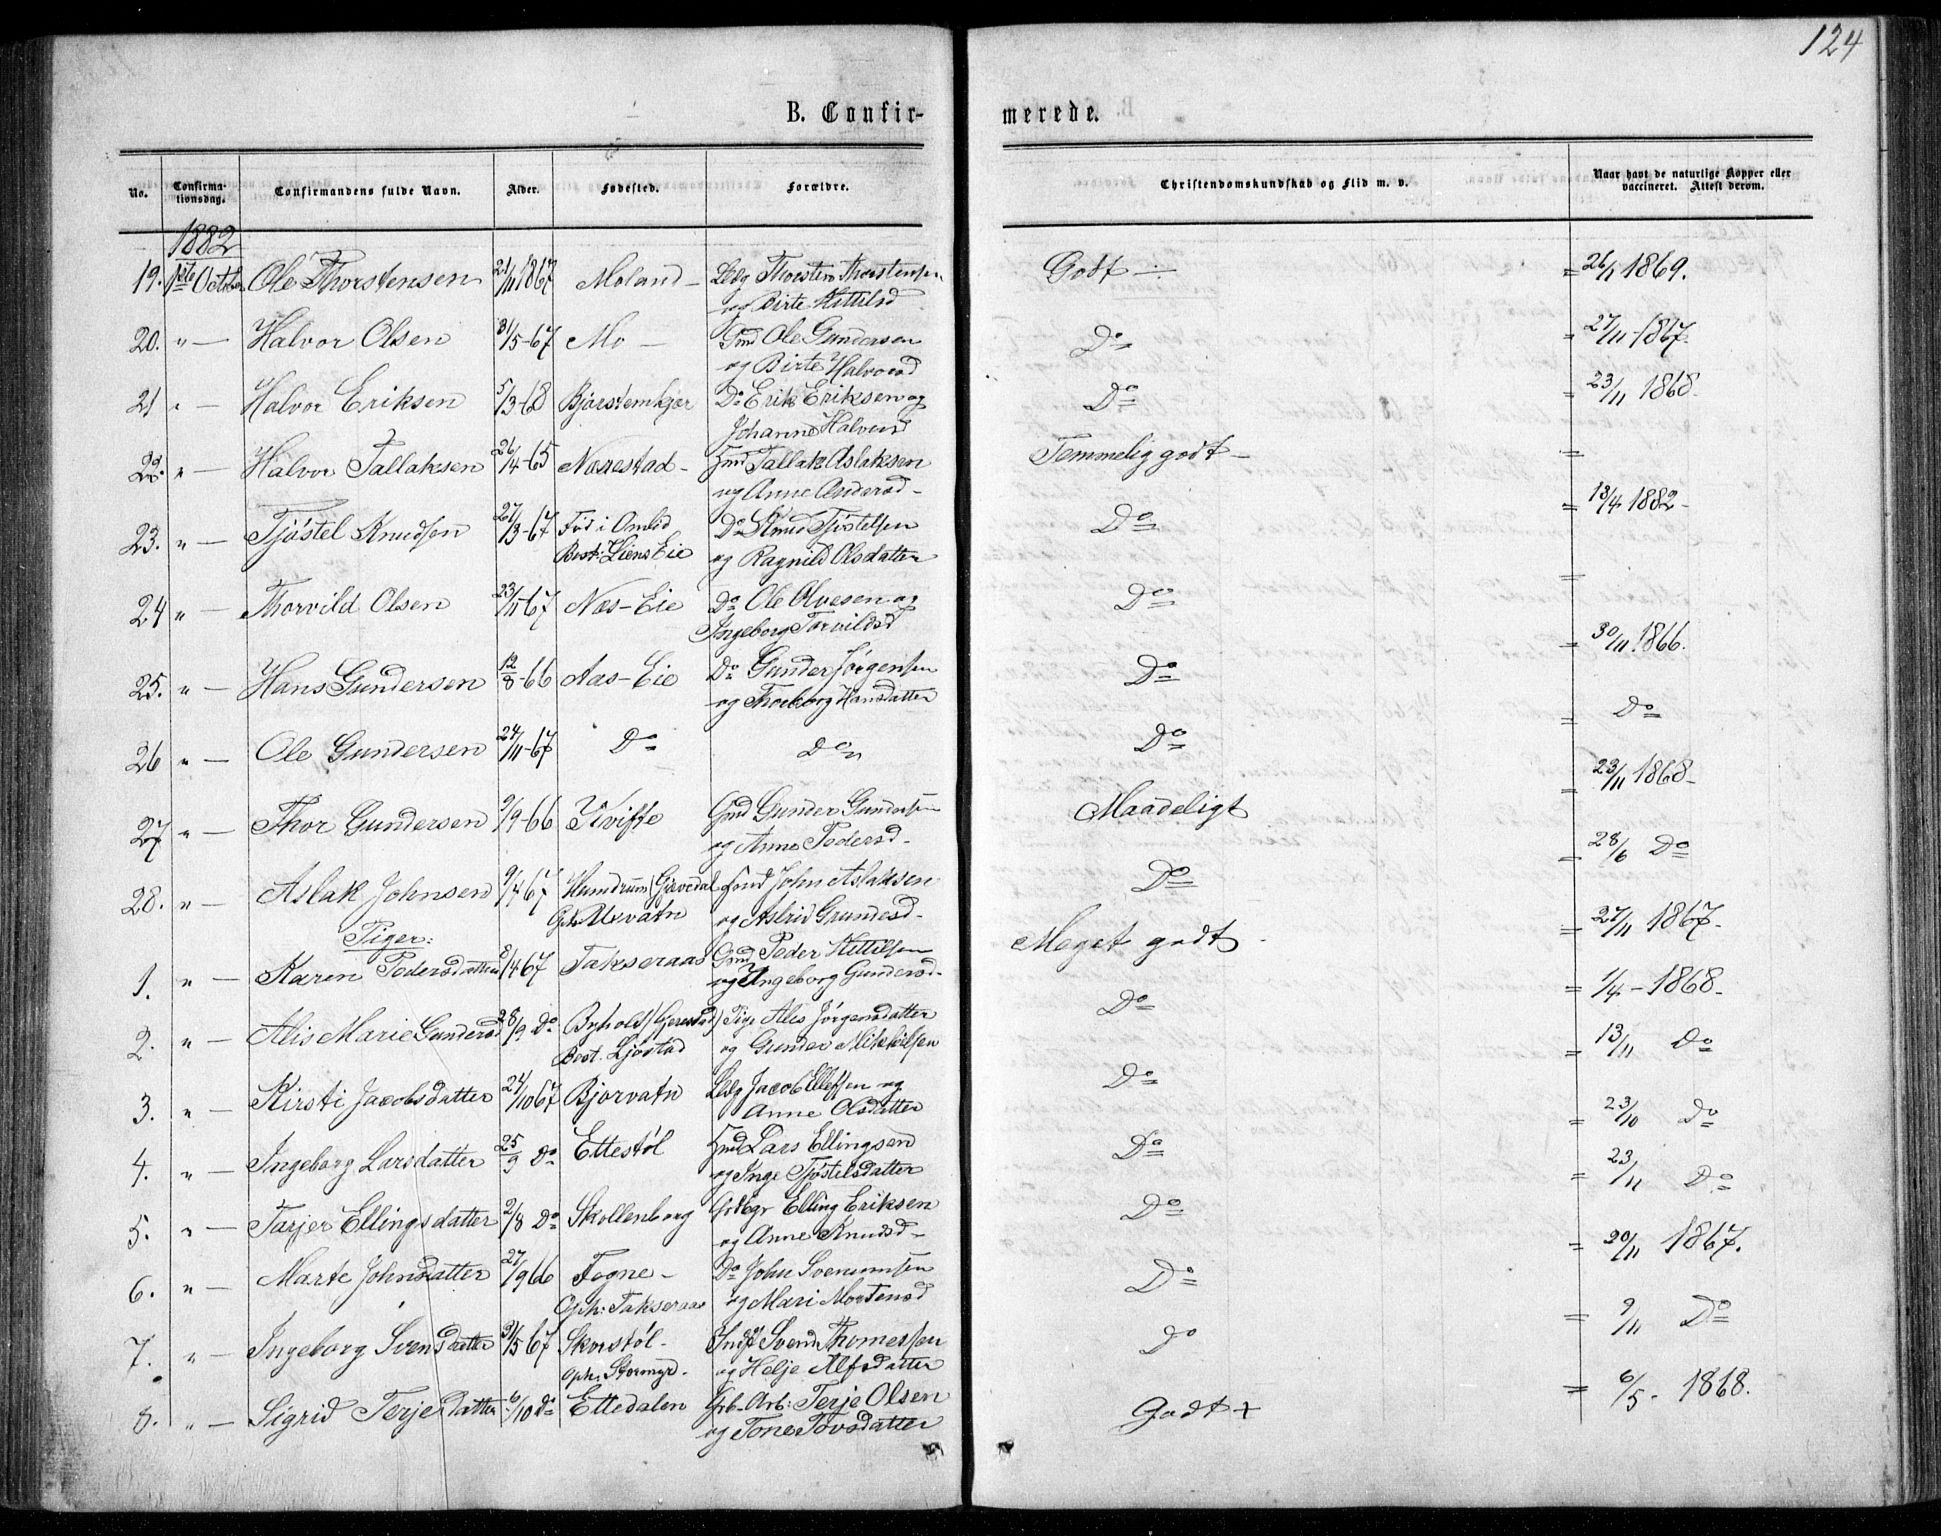 124
B. Confir-
merede.
No.
Confirma-
tionsdag.
Confirmandens fulde Navn.
Alder.
Fødested.
Forældre.
Christendomskundskab og Flid m. v.
Naar havt de naturlige Kopper eller
vaccineret. Attest derom.
1882
19. 1ste October Ole Thorstensen 21/11 1867 Moland - Thorsten Thorstensen Godt ÷ = 26/1 1869.
og Birte Kittilsd
20. " — Halvor Olsen 31/5-67 Mo - Gmd Ole Gundersen Do = 27/11 1867.
og Birte Halvorsd
21 " — Halvor Eriksen 5/3-68 Bjorstemkjær Do Erik Eriksen og Do = 23/11 1868.
Johanne Halvorsd
22. " — Halvor Tallaksen 26/4-65 Narestad - Hmd Tallak Aslaksen Temmelig godt - =
og Anne Andersd -
23. " — Tjøstel Knudsen 27/3-67 Fød i Omlid Do Knud Tjøstelsen Do = 13/4 1882 -
Best: Liens Eie og Ragnild Olsdatter
24 " — Thorvild Olsen 23/11-67 Næs-Eie Do Ole Olvesen og Do =
Ingeborg Torvildsd
25. " — Hans Gundersen 12/8-66 Aas-Eie Do Gunder Jørgensen Do = 30/11 1866.
og Thorborg Hansdatter
26 " — Ole Gundersen 24/11-67 Do Do Do = Do
27 " — Thor Gundersen 9/9-66 Gmd Gunder Gundersen Maadeligt = 23/11 1868-
og Anne Pedersd -
28. " — Aslak Johnsen 9/4 67 John Aslaksen Do = 28/6 Do
Uxvatn og Astrid Grundesd -
Piger:
1. " — Karen Pedersdatter 8/4 67 Takseraas Gmd Peder Kittilsen Meget godt - = 27/11 1867.
og Ingeborg Gundersd -
2. " — Alis Marie Gundersd 28/9 Do Byholt (Gjerestad) Pige Alis Jørgensdatter Do = 1/4 - 1868-
Best. Ljøstad og Gunder Mikkelsen
3. " — Kirsti Jacobsdatter 24/10 67 Bjorvatn Jacob Ellefsen og Do = 13/11 Do
Anne Olsdatter
4. " — Ingeborg Larsdatter 25/9 Do Ettestøl Hmd Lars Ellingsen Do = 23/10 Do
og Inge Tjøstelsdatter
5. " — Tarjer Ellingsdatter 2/8 Do Skollenborg Elling Eriksen Do = 23/11 Do
og Anne Knudsd -
6. " — Marte Johnsdatter 27/9 66 Fogne - Do John Svenumsen Do = 20/11 1867.
Oph: Takseraas og Mari Mortensd
7. " — Ingeborg Svensdatter 31/5 67 Skorstøl - Indst Svend Thomessen Do = 9/11 Do
Oph: Stormyr - og Helje Alfsdatter
8. " — Sigrid Terjesdatter 6/10 Do Ettedalen Grb-Arb: Terje Olsen Godt + = 6/5 - 1868.
og Tone Tovsdatter